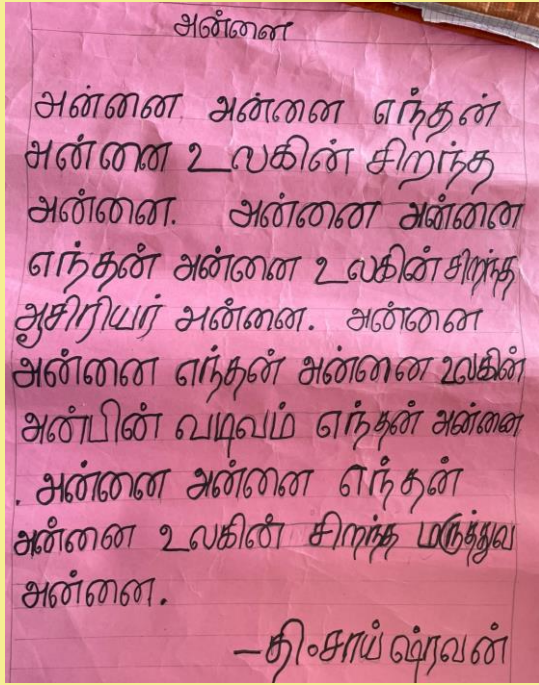 அன்னை
அன்னை அன்னை எந்தன்
அன்னை உலகின் சிறந்த
அன்னை. அன்னை அன்னை
எந்தன் அன்னை உலகின் சிறந்த
ஆசிரியர் அன்னை. அன்னை
அன்னை எந்தன் அன்னை உலகின்
அன்பின் வடிவம் எந்தன் அன்னை
. அன்னை அன்னை எந்தன்
அன்னை உலகின் சிறந்த மருத்துவ
அன்னை.
-தி.சாய் ஷ்ரவன்